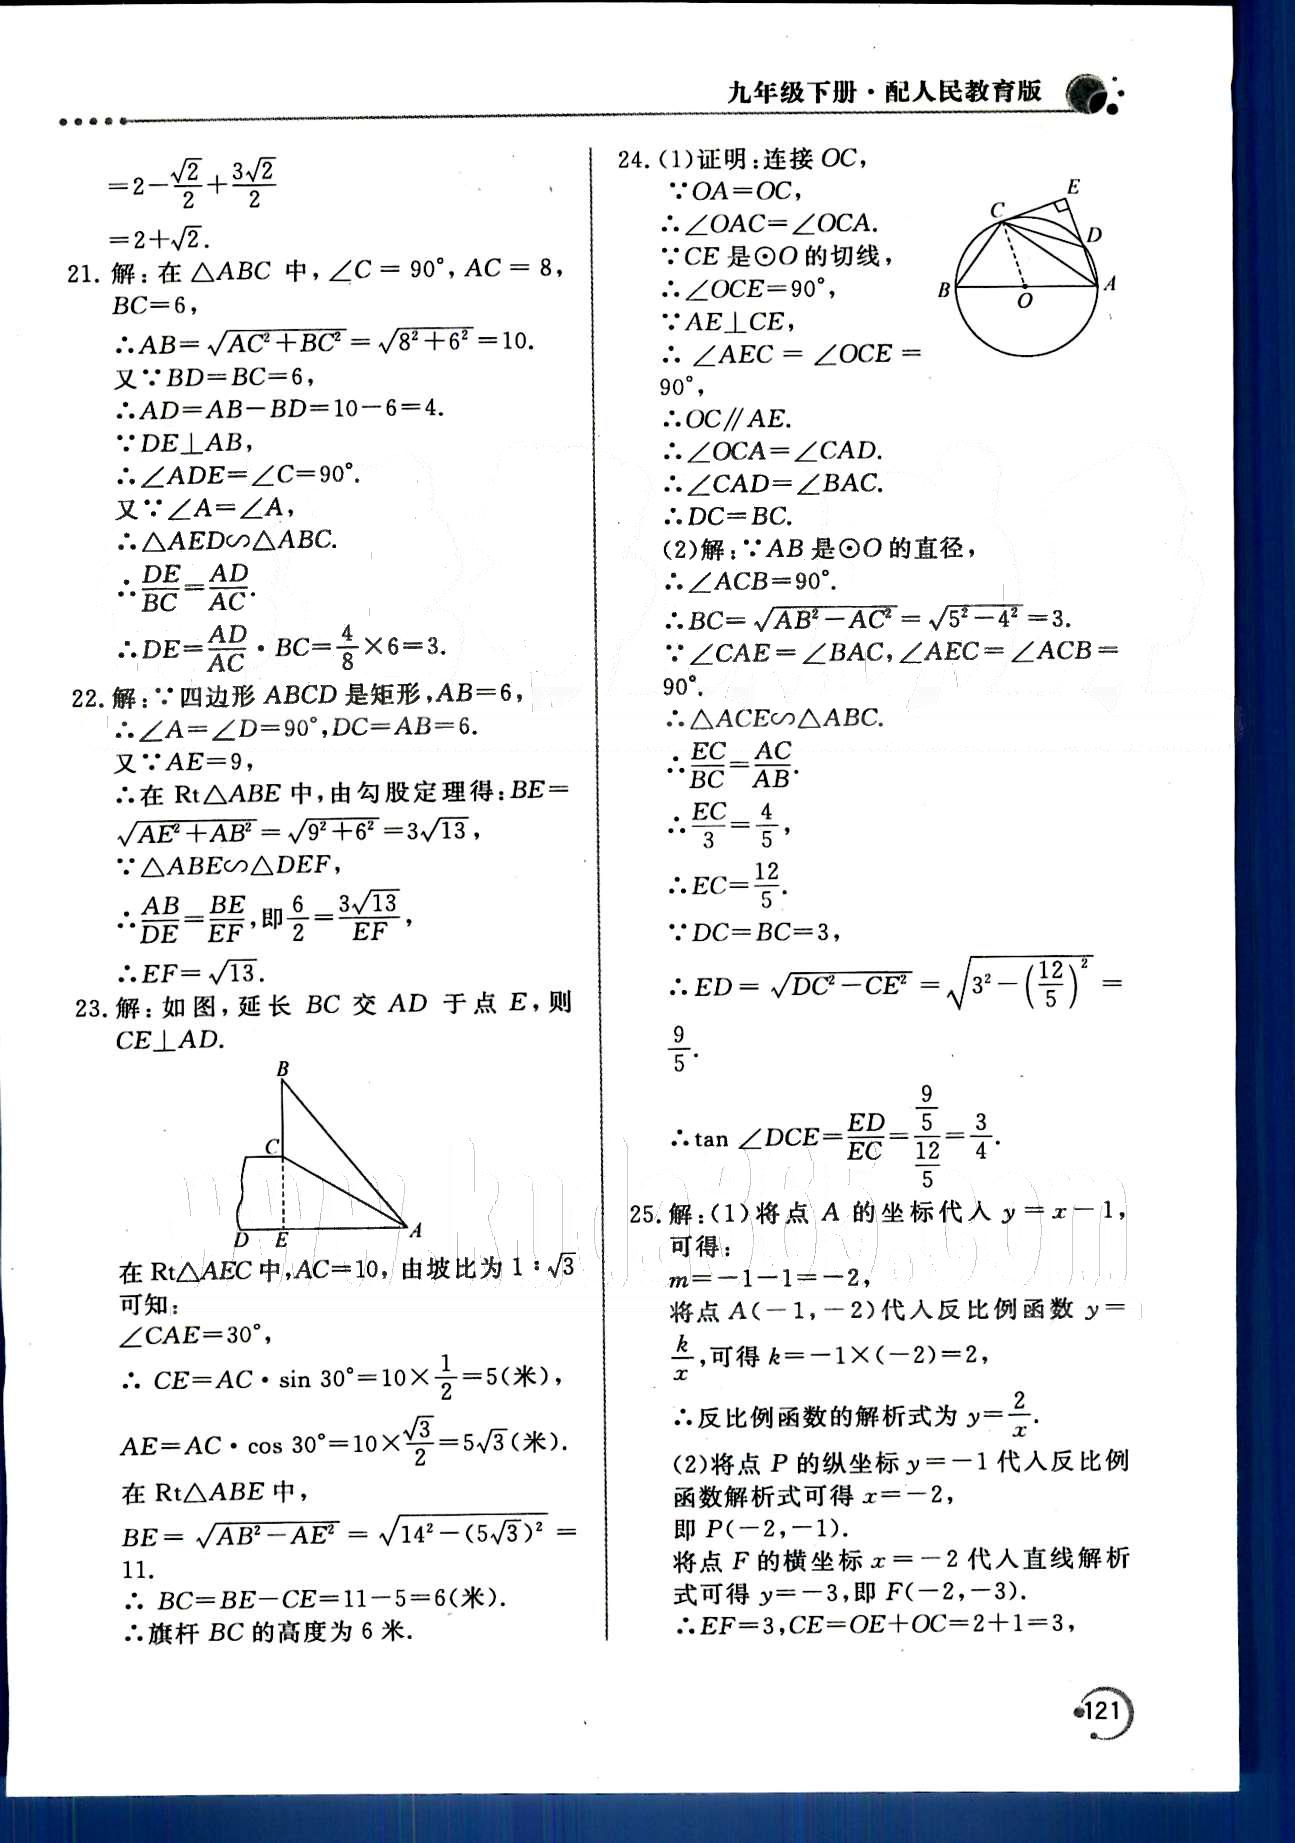 九年级下册·配人民教育版
=2-√2/2+3√2/2
=2+√2.
21. 解:在△ABC中,∠C=90°,AC=8,
BC=6,
∴AB=√(AC²+BC²)=√(8²+6²)=10.
又∵BD=BC=6,
∴AD=AB-BD=10-6=4.
∵DE⊥AB,
∴∠ADE=∠C=90°.
又∵∠A=∠A,
∴△AED∽△ABC.
∴DE/BC=AD/AC.
∴DE=AD/AC·BC=4/8×6=3.
22. 解:∵四边形ABCD是矩形,AB=6,
∴∠A=∠D=90°,DC=AB=6.
又∵AE=9,
∴在Rt△ABE中,由勾股定理得:BE=
√(AE²+AB²)=√(9²+6²)=3√13,
∵△ABE∽△DEF,
∴AB/DE=BE/EF,即6/2=3√13/EF,
∴EF=√13.
23. 解:如图,延长BC交AD于点E,则
CE⊥AD.
B
C
D E A
在Rt△AEC中,AC=10,由坡比为1:√3
可知:
∠CAE=30°,
∴CE=AC·sin 30°=10×1/2=5(米),
AE=AC·cos 30°=10×√3/2=5√3(米).
在Rt△ABE中,
BE=√(AB²-AE²)=√(14²-(5√3)²)=
11.
∴BC=BE-CE=11-5=6(米).
∴旗杆BC的高度为6米.
24. (1)证明:连接OC,
∵OA=OC,
∴∠OAC=∠OCA.
∵CE是⊙O的切线,
∴∠OCE=90°,
∵AE⊥CE,
∴∠AEC=∠OCE=
90°,
E
C
D
B O A
∴OC∥AE.
∴∠OCA=∠CAD.
∴∠CAD=∠BAC.
∴DC=BC.
(2)解:∵AB是⊙O的直径,
∴∠ACB=90°.
∴BC=√(AB²-AC²)=√(5²-4²)=3.
∵∠CAE=∠BAC,∠AEC=∠ACB=
90°.
∴△ACE∽△ABC.
∴EC/BC=AC/AB.
∴EC/3=4/5,
∴EC=12/5.
∵DC=BC=3,
∴ED=√(DC²-CE²)=√(3²-(12/5)²)=
9/5.
∴tan∠DCE=ED/EC=(9/5)/(12/5)=3/4.
25. 解:(1)将点A的坐标代入y=x-1,
可得:
m=-1-1=-2,
将点A(-1,-2)代入反比例函数y=
k/x,可得k=-1×(-2)=2,
∴反比例函数的解析式为y=2/x.
(2)将点P的纵坐标y=-1代入反比例
函数解析式可得x=-2,
即P(-2,-1).
将点F的横坐标x=-2代入直线解析
式可得y=-3,即F(-2,-3).
∴EF=3,CE=OE+OC=2+1=3,
121